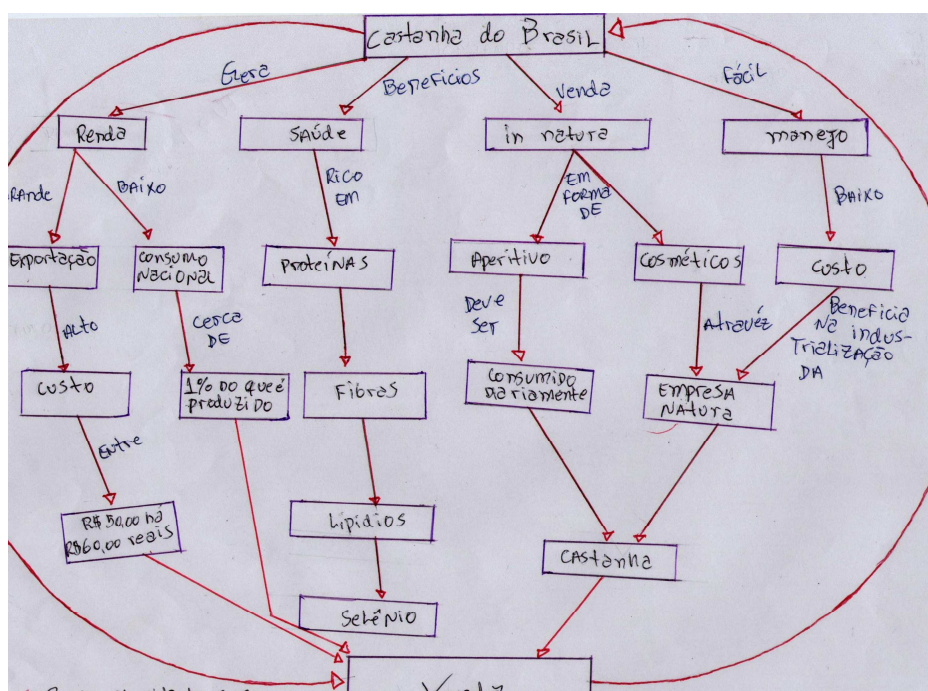 Castanha do Brasil
Gera
Benefícios
Venda
Fácil
Renda
SAúde
in natura
manejo
BAIXO
RICO
EM
EM
FORMA
DE
BAIXO
Exportação
CONSUMO
NACIONAL
PROTEÍNAS
Aperitivo
COSMÉTICOS
CUSTO
ALTO
Cerca
DE
Deve
SER
Atravéz
Beneficia
Na indus-
TRIALIZAÇÃO
DA
CUSTO
1% DO QUE é
produzido
Fibras
CONSUMIDO
Diariamente
EMPRESA
NATURA
ENTRE
R$ 50,00 há
R$60,00 reais
Lipídios
CASTANHA
SELÊNIO